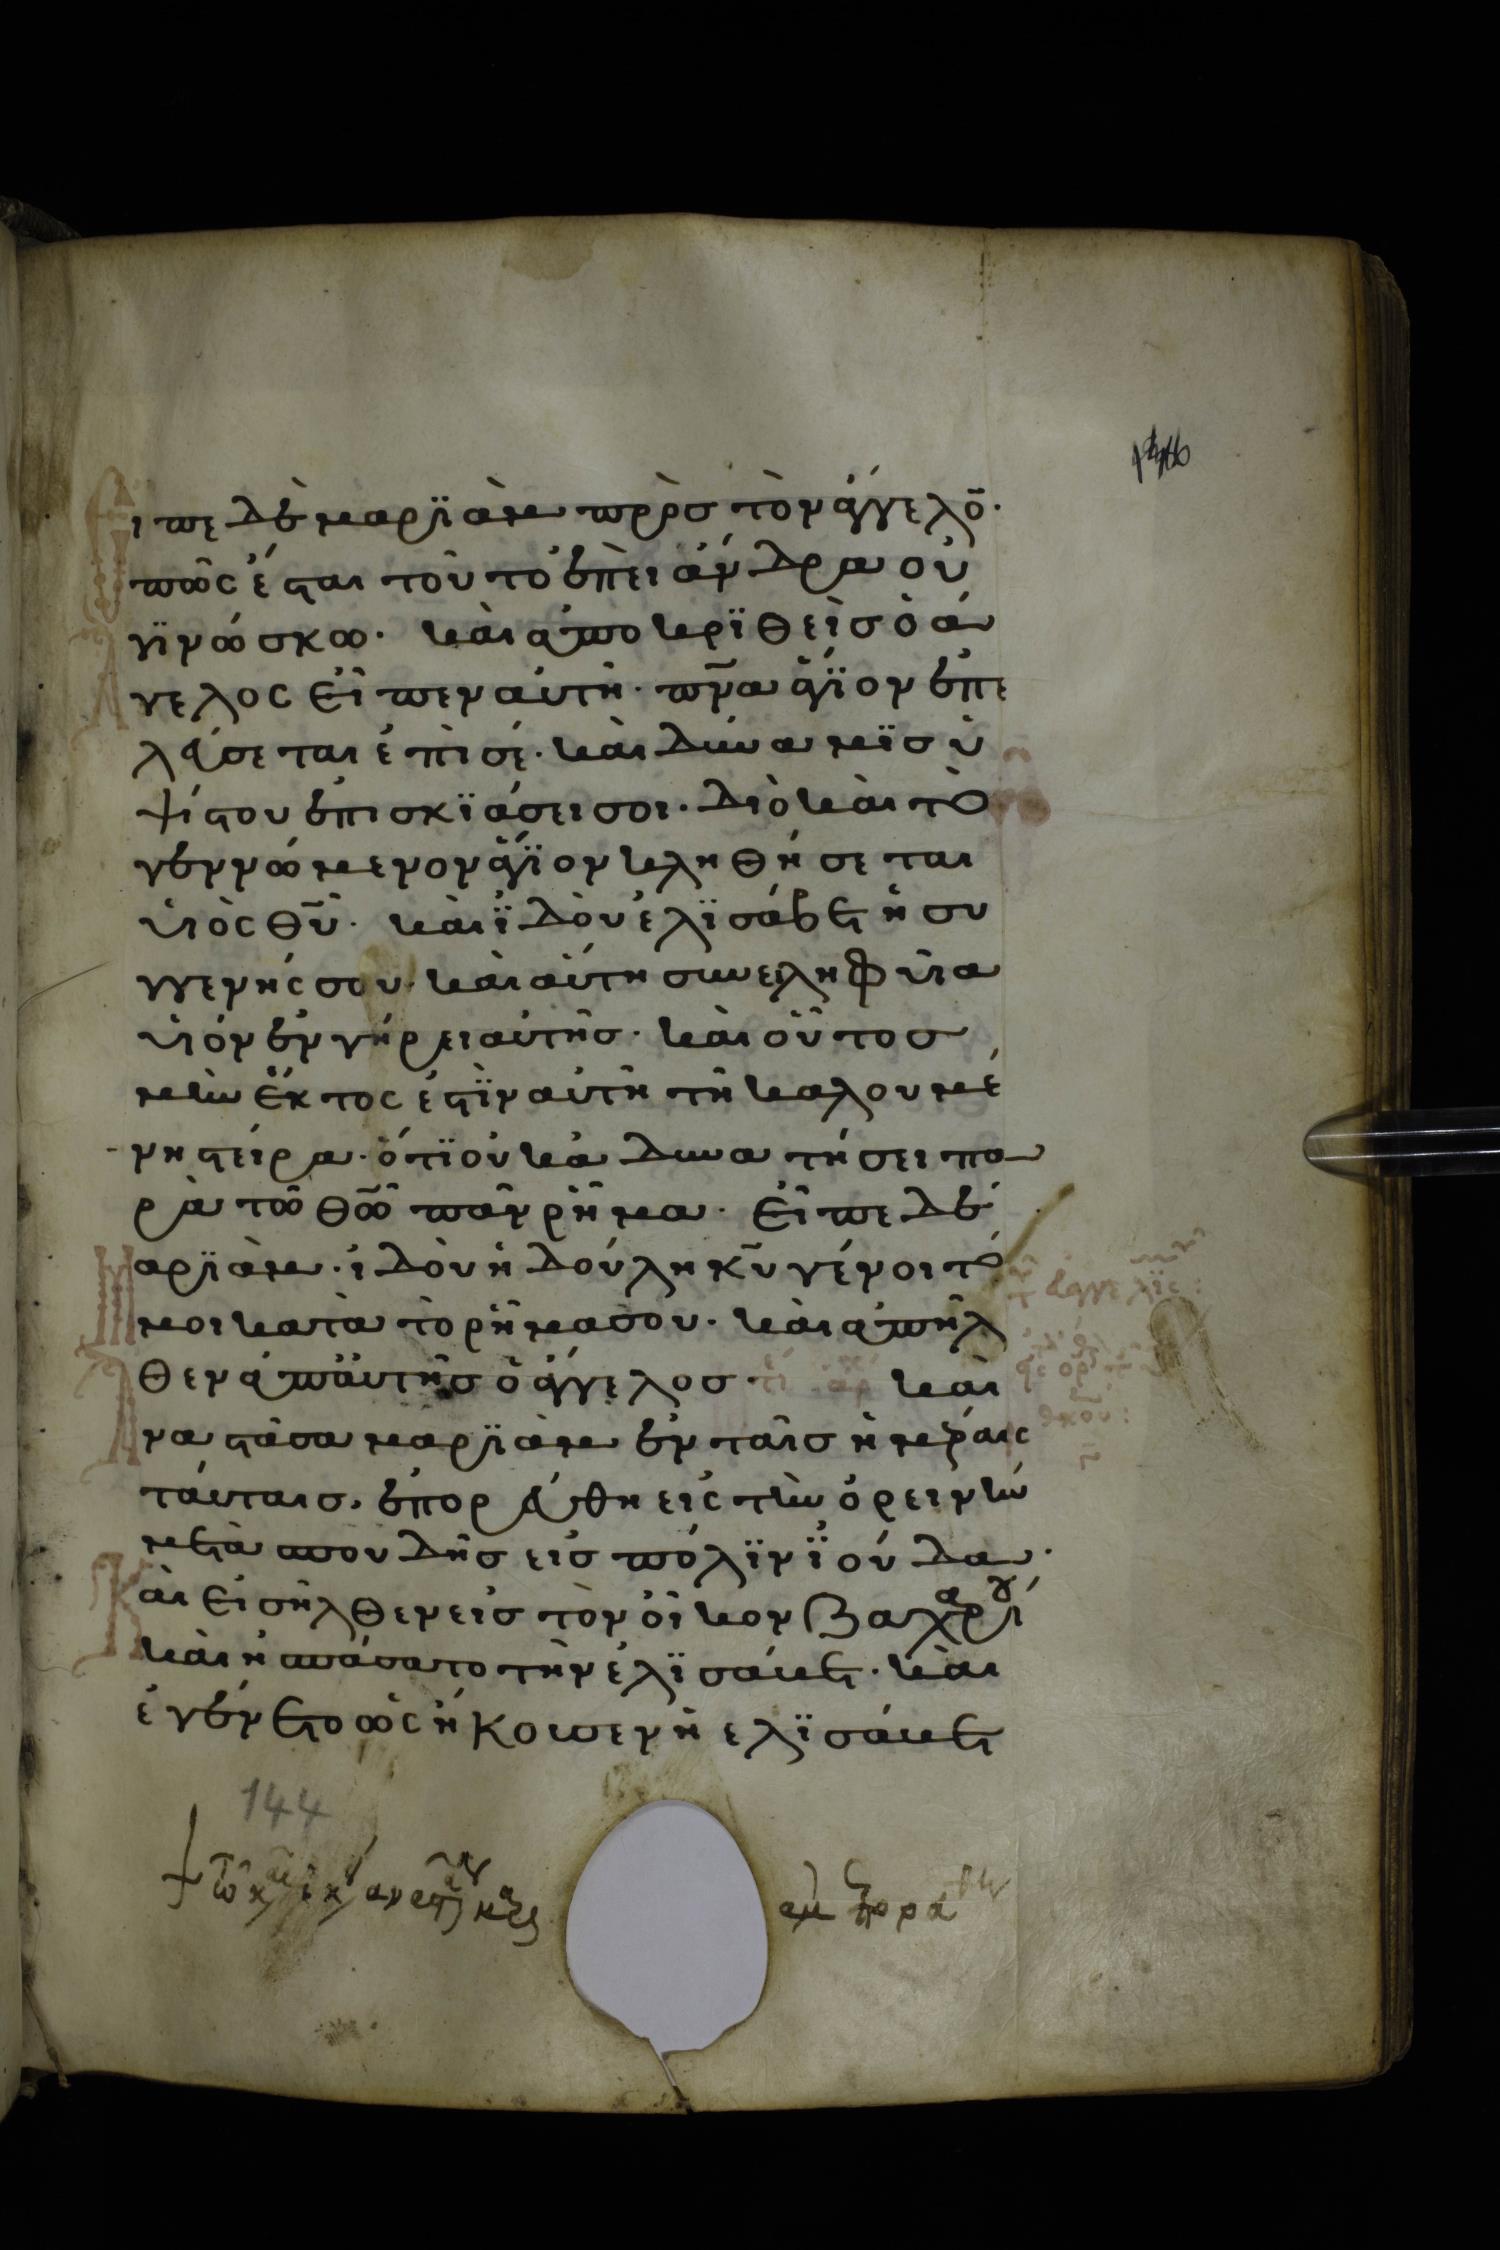 Εἶπε δὲ μαριὰμ πρὸς τὸν ἄγγελο̅·
πῶς ἔσται τοῦτο ἐπεὶ ἄνδρα οὐ
γϊνώσκω· καὶ ἀποκρϊθεὶς ὁ ἄ
γελος εἶπεν αὐτῆ· πν̅α ἅγϊον ἐπε
λεύσεται ἐπὶ σέ· καὶ δύναμϊς ὑ
ψίστου ἐπισκϊάσει σοι· διὸ καὶ τὸ
γεννώμενον ἅγϊον κληθήσεται
υἱὸς θῦ· καὶ ἰ̈δοὺ ἐλϊσάβετ ἡ συ
γγενής σου· καὶ αὐτὴ συνειληφυῖα
υἱὸν ἐν γήρει αὐτῆς· καὶ οὗτος
μὴν ἕκτος ἐστϊν αὐτῆ τῆ καλουμέ
νη στείρα· ὅτϊ οὐκ ἀδυνατήσει πα
ρὰ τῶ θῶ πᾶν ῥῆμα· Εἶπε δὲ
Μαρϊὰμ· ἰδοὺ ἡ δούλη κῦ γένοιτό
μοι κατὰ τὸ ῥῆμα σου· καὶ ἀπῆλ
θεν ἀπ' αὐτῆς ὁ ἄγγελος· καὶ
Ἀναστᾶσα μαρϊὰμ ἐν ταῖς ἡμέραις
ταύταις. ἐπορεύθη εἰς τὴν ὀρεινὴν
μετὰ σπουδῆς εἰς πόλϊν ἰ̈ούδα·
Καὶ εἰσῆλθεν εἰς τὸν οἶκον ζαχαρίου
καὶ ἠσπάσατο τὴν ἐλϊσάβετ· καὶ
ἐγένετο ὡς ἤκουσεν ἡ ἐλϊσάβετ
144